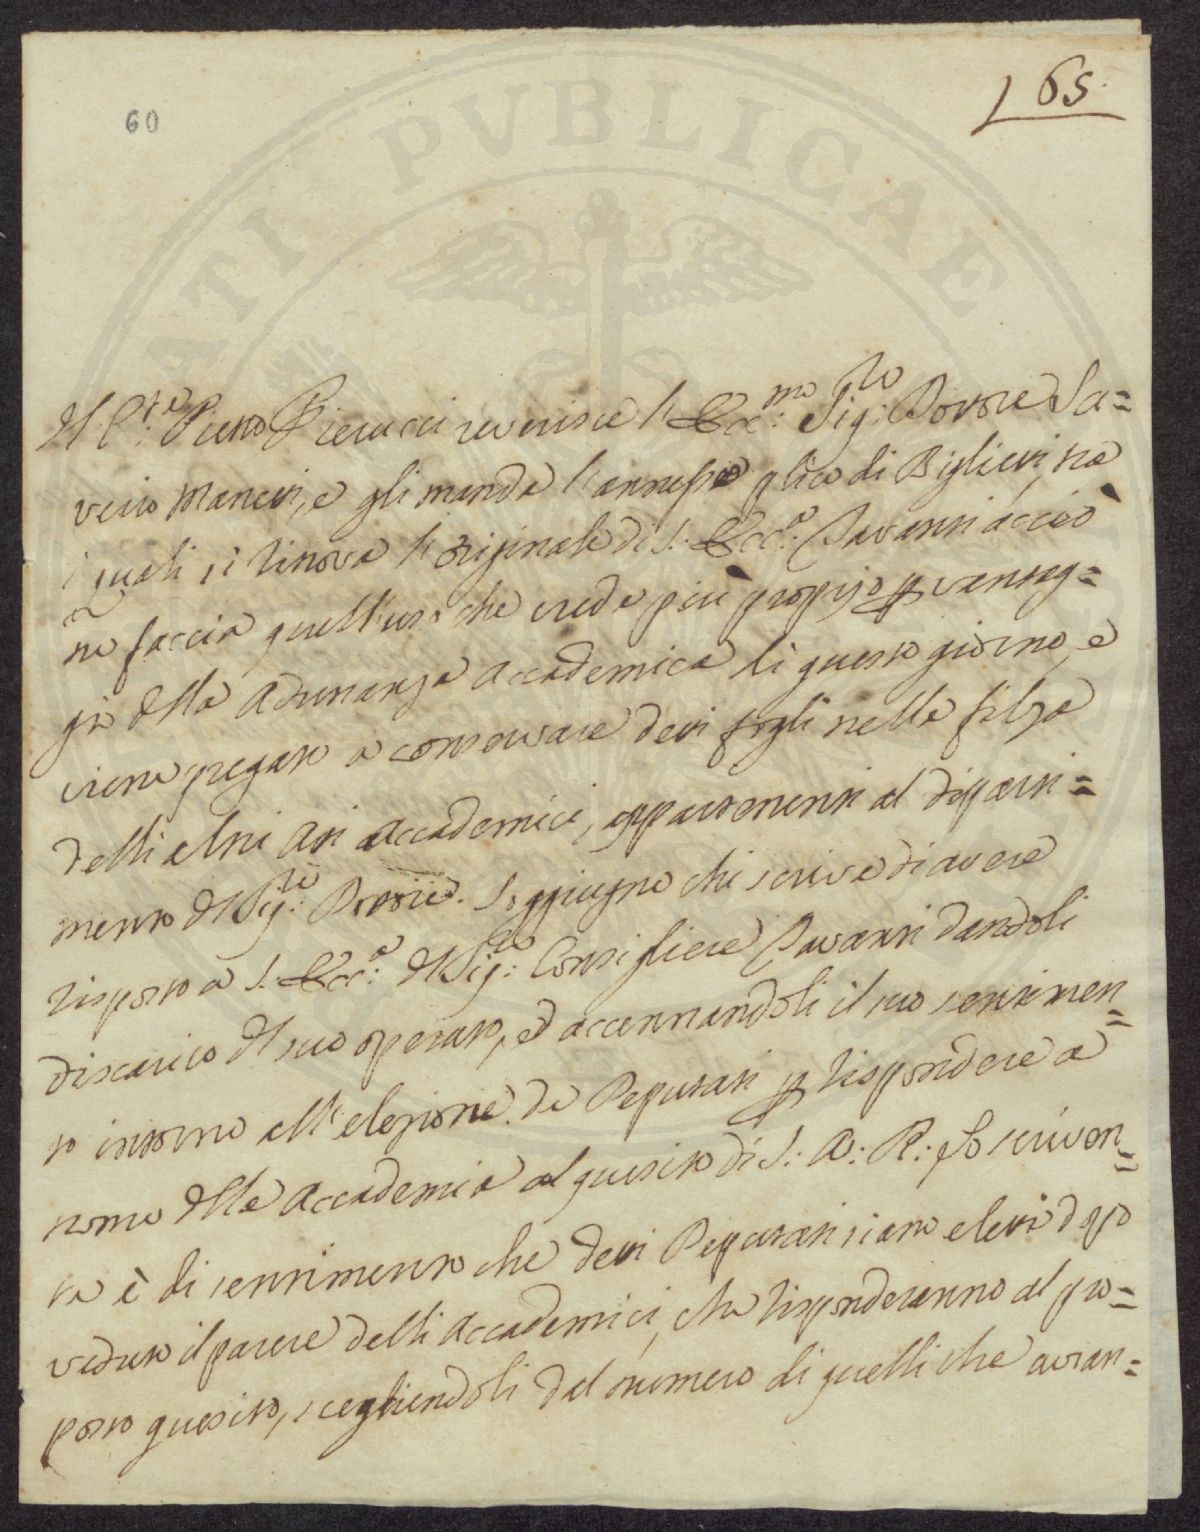 60
65.
ATI PVBLICAE
Il C.te Pietro Pierucci reverisce l'Ecc.mo Sig.re Dottore Sa=
verio Manetti, e gli manda l'annesso plico di Biglietti, tra
i quali si ritrova l'originale di S. Ecc.a Tavanti acciò
ne faccia quell'uso che crede più proprio per vantag=
gio della Adunanza Accademica di questo giorno, e
viene pregato a conservare detti fogli nella filza
delli altri Atti Accademici, appartenenti al Diparti=
mento del Sig.re Dottore. Soggiugne chi scrive di avere
risposto a S. Ecc.a il Sig.re Consigliere Tavanti dandoli
discarico del suo operato, ed accennandoli il suo sentimen=
to intorno all'elezione de Deputati per rispondere a
nome della Accademia al quesito di S: A: R: Lo scriven=
te è di sentimento che detti Deputati siano eletti dopo
veduto il parere delli Accademici, che risponderanno al pro=
posto quesito, scegliendoli dal numero di quelli che avran=